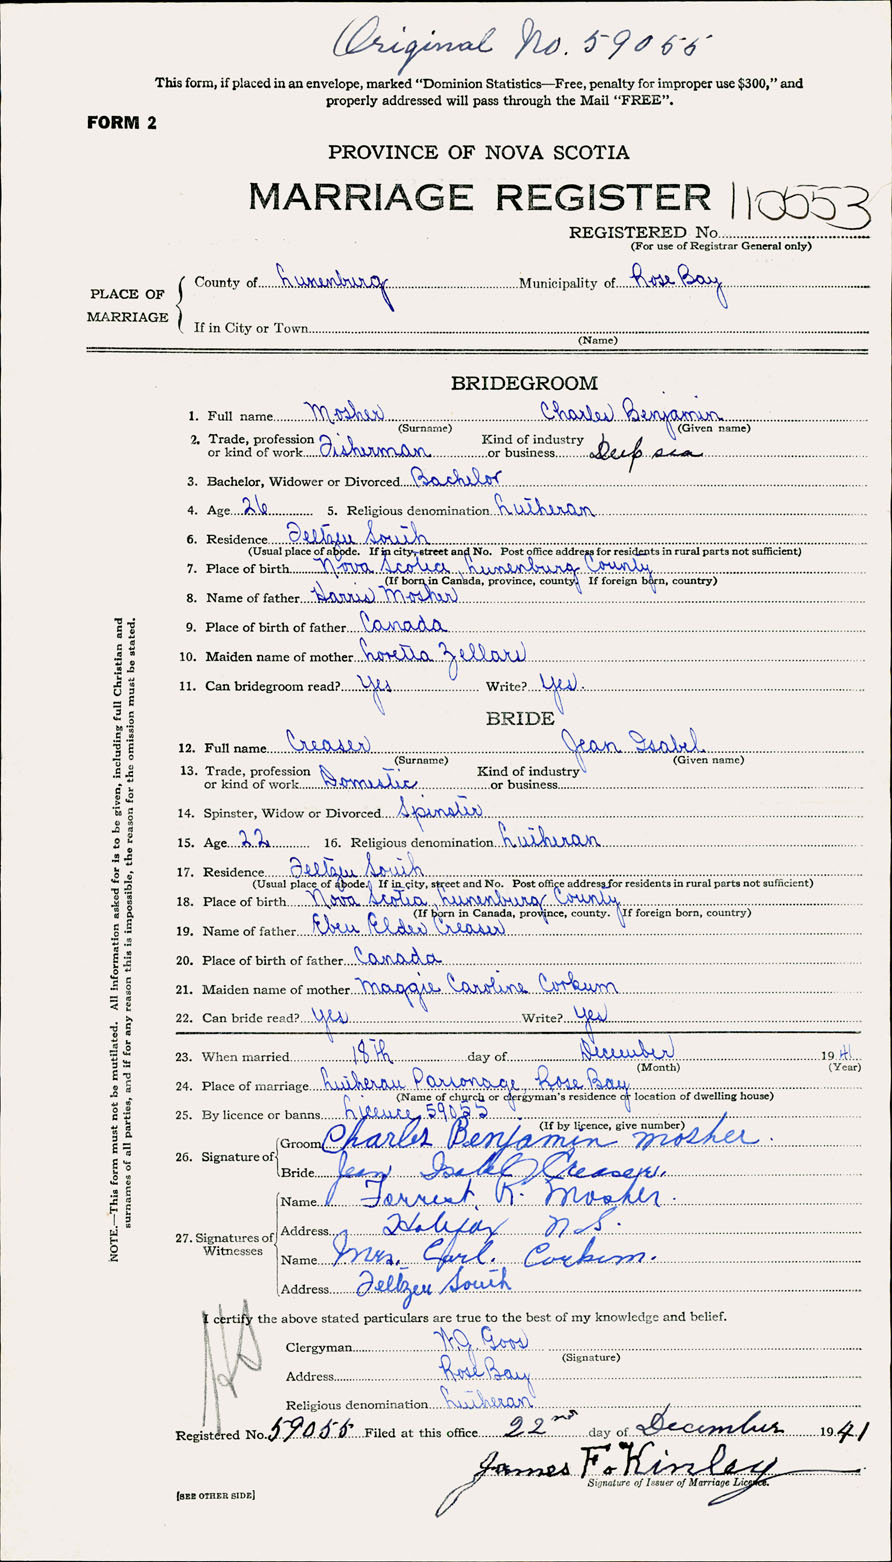 Original No. 59055
This form, if placed in an envelope, marked "Dominion Statistics—Free, penalty for improper use $300," and
properly addressed will pass through the Mail "FREE".
FORM 2
PROVINCE OF NOVA SCOTIA
MARRIAGE REGISTER 110553
REGISTERED No.
(For use of Registrar General only)
PLACE OF MARRIAGE
County of Lunenburg Municipality of Rose Bay
If in City or Town
(Name)
BRIDEGROOM
1. Full name Mosher Charles Benjamin
(Surname) (Given name)
2. Trade, profession or kind of work Fisherman Kind of industry or business Deep sea
3. Bachelor, Widower or Divorced Bachelor
4. Age 26 5. Religious denomination Lutheran
6. Residence Feltzen South
(Usual place of abode. If in city, street and No. Post office address for residents in rural parts not sufficient)
7. Place of birth Nova Scotia, Lunenburg County
(If born in Canada, province, county. If foreign born, country)
8. Name of father Harris Mosher
9. Place of birth of father Canada
10. Maiden name of mother Loretta Zellars
11. Can bridegroom read? Yes Write? Yes.
BRIDE
12. Full name Creaser Jean Isabel
(Surname) (Given name)
13. Trade, profession or kind of work Domestic Kind of industry or business
14. Spinster, Widow or Divorced Spinster
15. Age 22 16. Religious denomination Lutheran
17. Residence Feltzen South
(Usual place of abode. If in city, street and No. Post office address for residents in rural parts not sufficient)
18. Place of birth Nova Scotia, Lunenburg County
(If born in Canada, province, county. If foreign born, country)
19. Name of father Eben Elder Creaser
20. Place of birth of father Canada
21. Maiden name of mother Maggie Caroline Corkum
22. Can bride read? Yes Write? Yes
23. When married 18th day of December 1941
(Month) (Year)
24. Place of marriage Lutheran Parsonage, Rose Bay
(Name of church or clergyman's residence or location of dwelling house)
25. By licence or banns Licence 59055
(If by licence, give number)
26. Signature of
Groom Charles Benjamin Mosher.
Bride Jean Isabel Creaser.
27. Signatures of Witnesses
Name Forrest R. Mosher.
Address Halifax N.S.
Name Mrs. Earl. Corkum.
Address Feltzen South
I certify the above stated particulars are true to the best of my knowledge and belief.
Clergyman W.G. Goos
(Signature)
Address Rose Bay
Religious denomination Lutheran
Registered No. 59055 Filed at this office 22nd day of December 1941
James F. Kinley
Signature of Issuer of Marriage Licence.
[SEE OTHER SIDE]
NOTE.—This form must not be mutilated. All information asked for is to be given, including full Christian and
surnames of all parties, and if for any reason this is impossible, the reason for the omission must be stated.